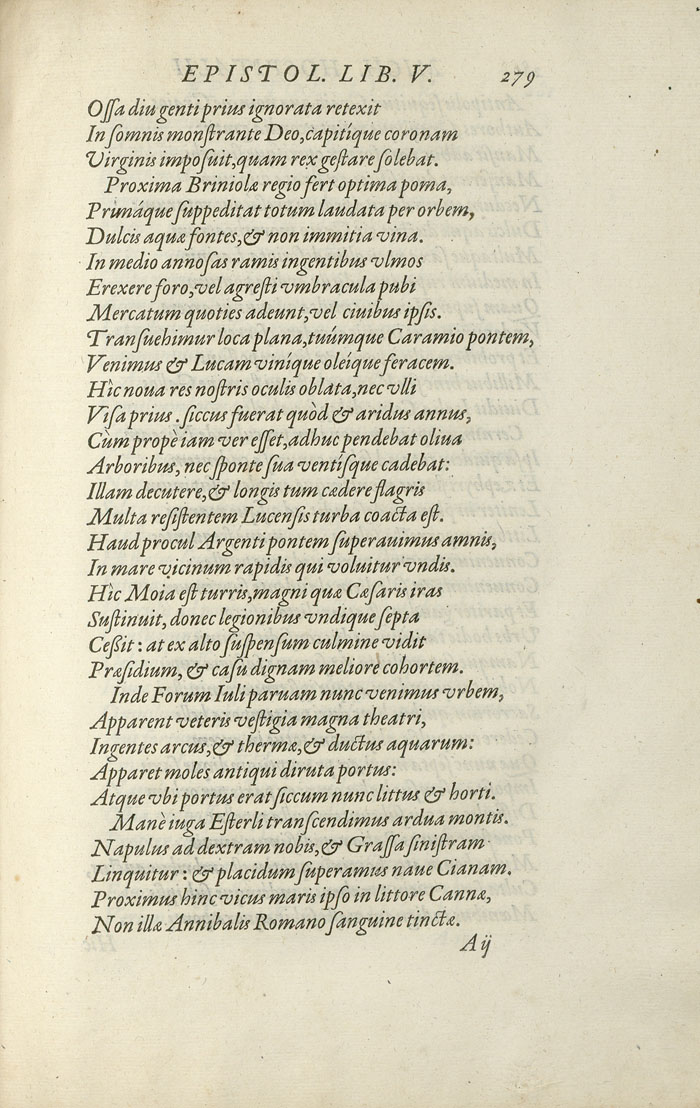 EPISTOL. LIB. V. 279
Oſſa diu genti prius ignorata retexit
In ſomnis monſtrante Deo, capitíque coronam
Virginis impoſuit, quam rex geſtare ſolebat.
Proxima Briniolæ regio fert optima poma,
Prunáque ſuppeditat totum laudata per orbem,
Dulcis aquæ fontes, & non immitia vina.
In medio annoſas ramis ingentibus vlmos
Erexere foro, vel agreſti vmbracula pubi
Mercatum quoties adeunt, vel ciuibus ipſis.
Tranſuehimur loca plana, tuúmque Caramio pontem,
Venimus & Lucam viníque oleíque feracem.
Hîc noua res noſtris oculis oblata, nec vlli
Viſa prius. ſiccus fuerat quòd & aridus annus,
Cùm propè iam ver eſſet, adhuc pendebat oliua
Arboribus, nec ſponte ſua ventíſque cadebat:
Illam decutere, & longis tum cædere flagris
Multa reſiſtentem Lucenſis turba coacta eſt.
Haud procul Argenti pontem ſuperauimus amnis,
In mare vicinum rapidis qui voluitur vndis.
Hîc Moia eſt turris, magni quæ Cæſaris iras
Suſtinuit, donec legionibus vndique ſepta
Ceßit: at ex alto ſuſpenſum culmine vidit
Præſidium, & caſu dignam meliore cohortem.
Inde Forum Iuli paruam nunc venimus vrbem,
Apparent veteris veſtigia magna theatri,
Ingentes arcus, & thermæ, & ductus aquarum:
Apparet moles antiqui diruta portus:
Atque vbi portus erat ſiccum nunc littus & horti.
Manè iuga Eſterli tranſcendimus ardua montis.
Napulus ad dextram nobis, & Graſſa ſiniſtram
Linquitur: & placidum ſuperamus naue Cianam.
Proximus hinc vicus maris ipſo in littore Cannæ,
Non illæ Annibalis Romano ſanguine tinctæ.
A ij